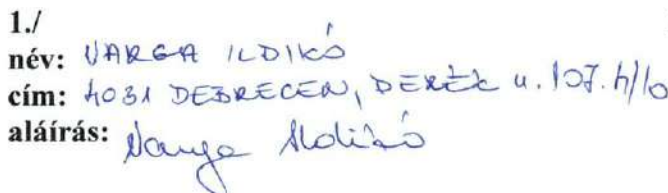 1./
név: VARGA ILDIKÓ
cím: 4031 DEBRECEN, DERÉK u. 107. 4/10
aláírás: Varga Ildikó